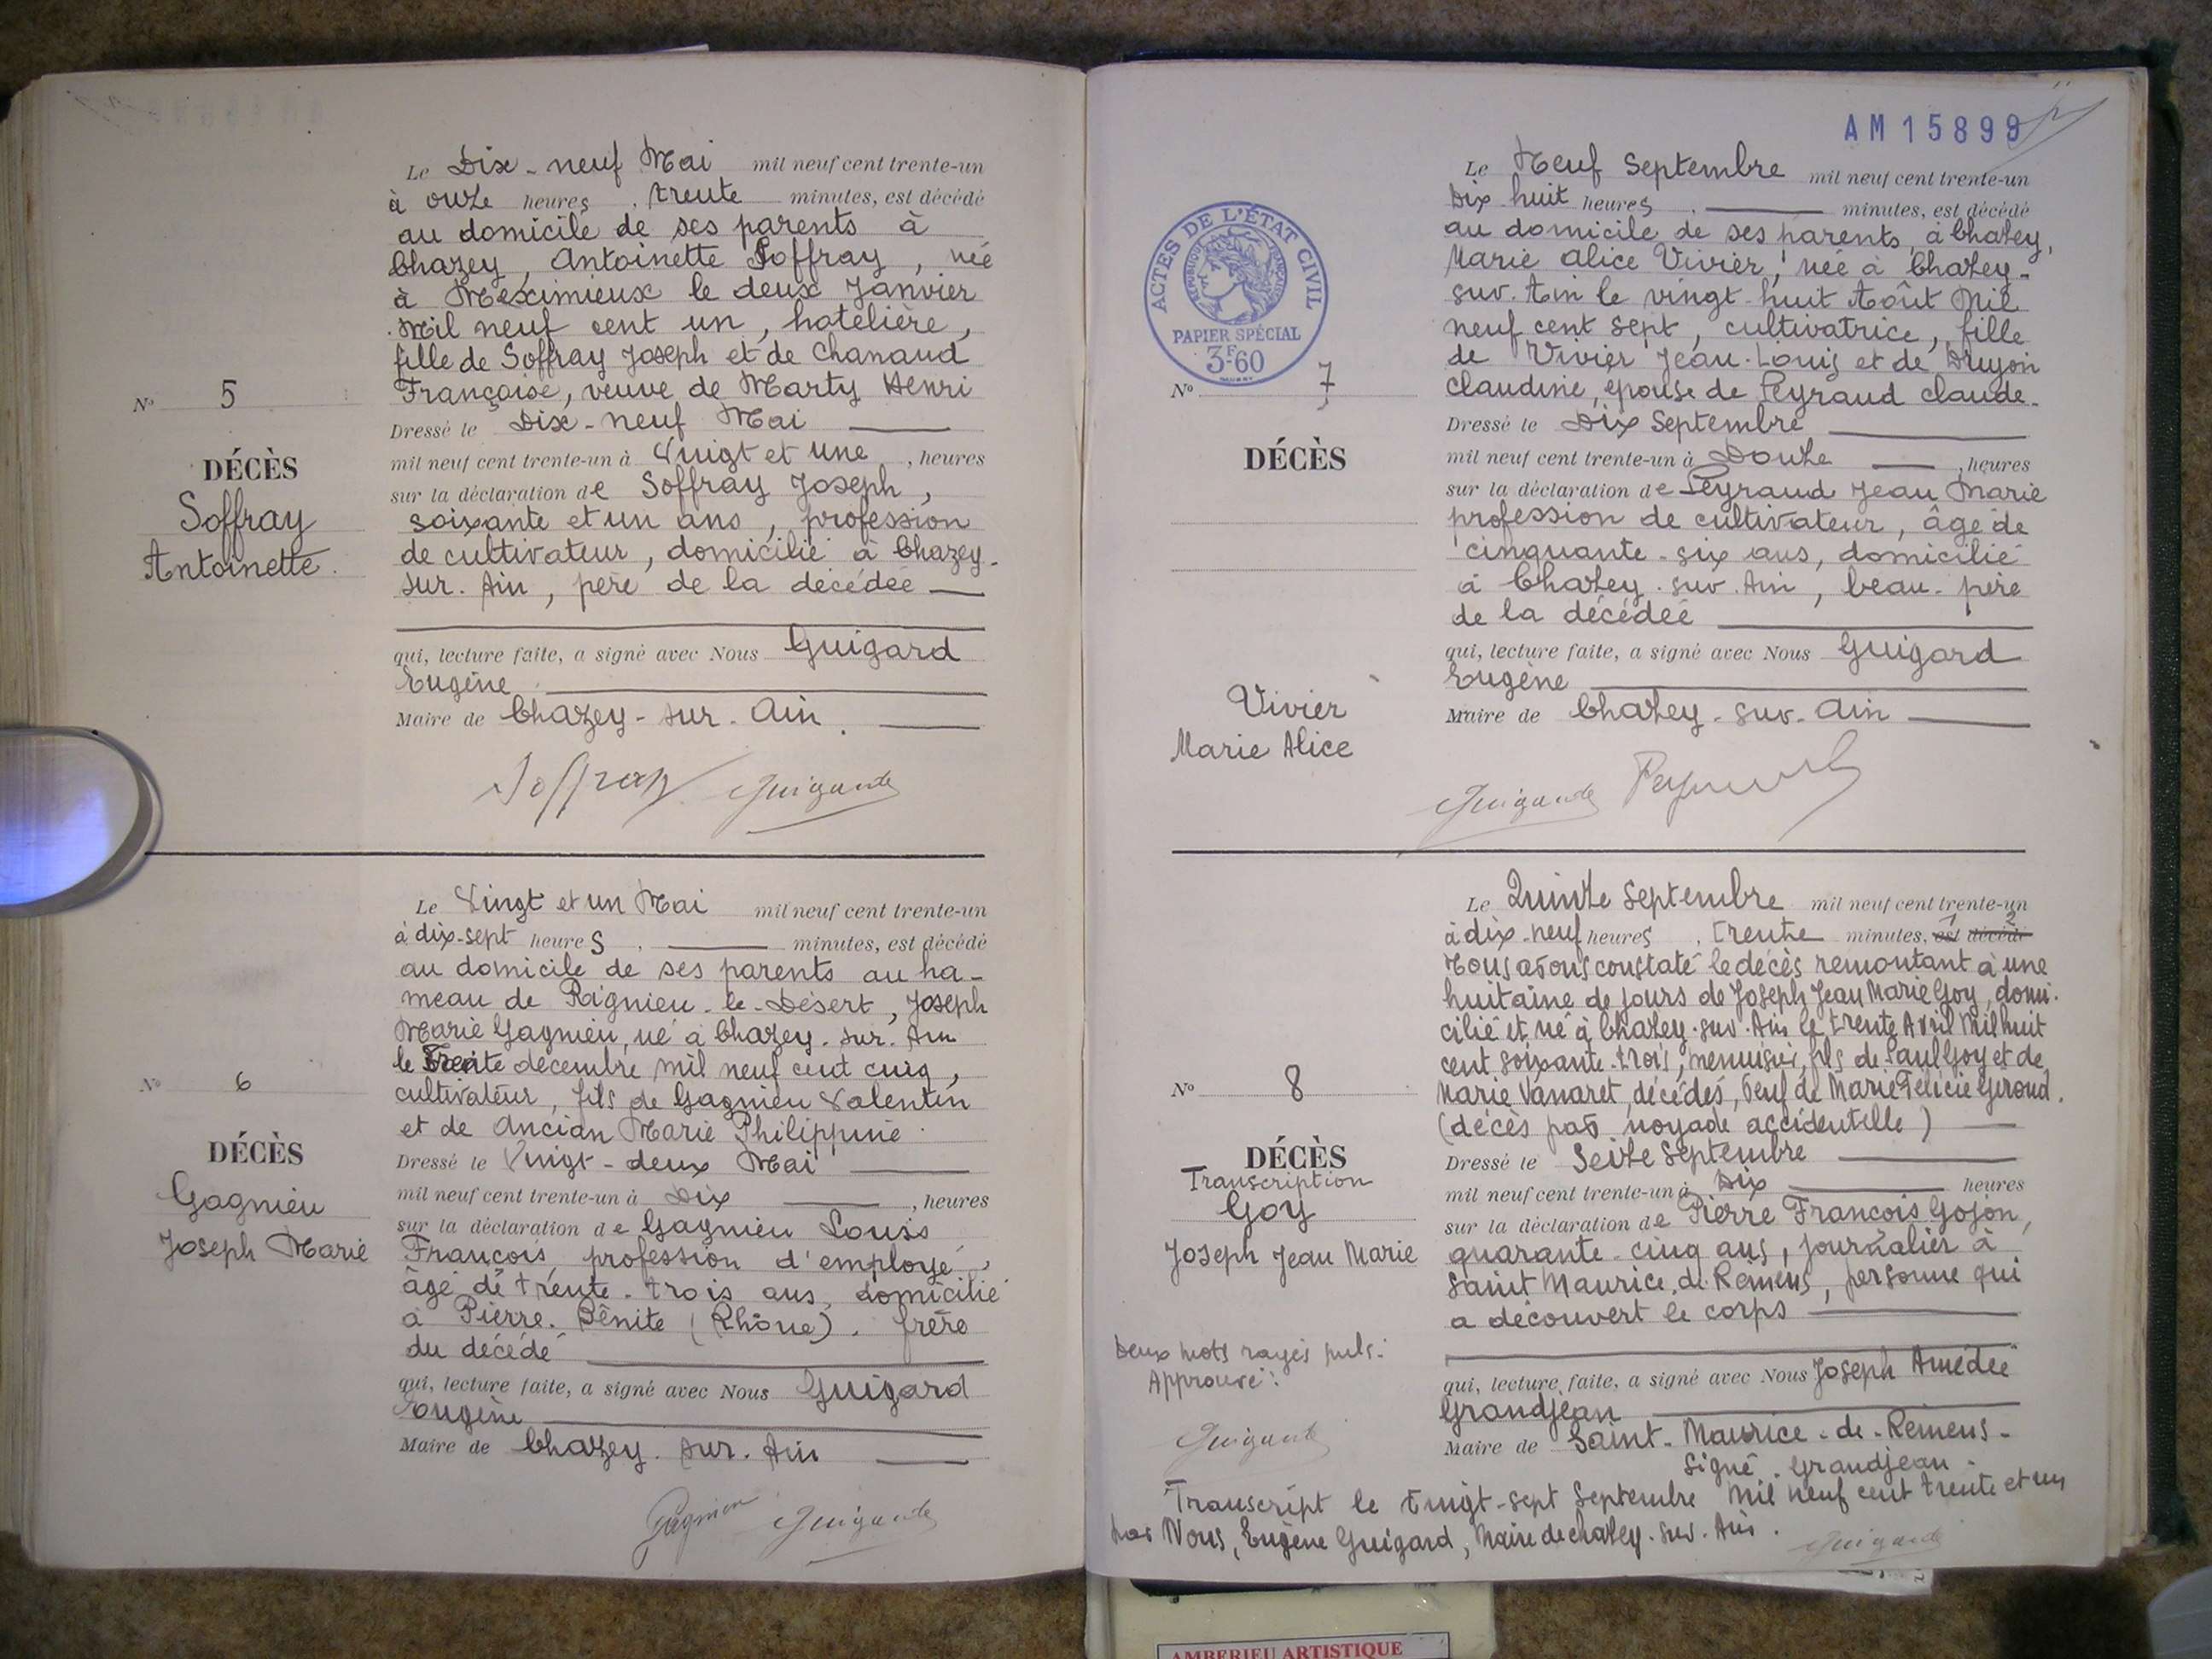 Le Dix-neuf Mai mil neuf cent trente-un
à onze heures, trente minutes, est décédé
au domicile de ses parents à
Chazey, Antoinette Soffray, née
à Meximieux le deux Janvier
Mil neuf cent un, hotelière,
fille de Soffray Joseph et de Chanaud
Française, veuve de Marty Henri
Nº 5
Dressé le Dix-neuf Mai
DÉCÈS
Soffray
Antoinette.
mil neuf cent trente-un à Vingt et une, heures
sur la déclaration de Soffray Joseph,
soixante et un ans, profession
de cultivateur, domicilié à Chazey-
sur-Ain, père de la décédée
qui, lecture faite, a signé avec Nous Guigard
Eugène
Maire de Chazey-sur-Ain
Soffray Guigard
Le Vingt et un Mai mil neuf cent trente-un
à dix-sept heures, minutes, est décédé
au domicile de ses parents au ha-
meau de Rignieu-le-Désert, Joseph
Marie Gagnieu, né à Chazey-sur-Ain
le Trente décembre mil neuf cent cinq,
Nº 6
cultivateur, fils de Gagnieu Valentin
et de Ancian Marie Philippine
DÉCÈS
Gagnieu
Joseph Marie
Dressé le Vingt-deux Mai
mil neuf cent trente-un à Dix, heures
sur la déclaration de Gagnieu Louis
François, profession d'employé,
âgé de trente-trois ans, domicilié
à Pierre-Bénite (Rhône), frère
du décédé
qui, lecture faite, a signé avec Nous Guigard
Eugène
Maire de Chazey-sur-Ain
Gagnieu Guigard
AM15899
Le Neuf Septembre mil neuf cent trente-un
Dix huit heures, minutes, est décédé
au domicile de ses parents, à Chazey,
Marie Alice Vivier, née à Chazey-
sur-Ain le vingt-huit Août Mil
neuf cent sept, cultivatrice, fille
de Vivier Jean-Louis et de Druyon
Claudine, épouse de Peyraud Claude.
ACTES DE L'ÉTAT CIVIL
RÉPUBLIQUE FRANÇAISE
PAPIER SPÉCIAL
3F60
Nº 7
DÉCÈS
Vivier
Marie Alice
Dressé le Dix Septembre
mil neuf cent trente-un à Douze, heures
sur la déclaration de Peyraud Jean Marie
profession de cultivateur, âgé de
cinquante-six ans, domicilié
à Chazey-sur-Ain, beau-père
de la décédée
qui, lecture faite, a signé avec Nous Guigard
Eugène
Maire de Chazey-sur-Ain
Guigard Peyraud
Le Quinze Septembre mil neuf cent trente-un
à dix-neuf heures, trente minutes, est décédé
1 2
Nous avons constaté le décès remontant à une
huitaine de jours de Joseph Jean Marie Goy, domi-
cilié et né à Chazey-sur-Ain le trente Avril Mil huit
cent soixante-trois, menuisier, fils de Paul Goy et de
Marie Vanaret, décédés, veuf de Marie Félicie Geroud.
(décès par noyade accidentelle)
Nº 8
DÉCÈS
Transcription
Goy
Joseph Jean Marie
Dressé le Seize Septembre
mil neuf cent trente-un à Dix heures
sur la déclaration de Pierre François Gojon,
quarante-cinq ans, journalier à
Saint Maurice-de-Rémens, personne qui
a découvert le corps
Deux mots rayés nuls.
Approuvé:
Guigard
qui, lecture faite, a signé avec Nous Joseph Amédée
Grandjean
Maire de Saint-Maurice-de-Rémens-
Signé. Grandjean.
Transcript le vingt-sept Septembre mil neuf cent trente et un
par Nous, Eugène Guigard, Maire de Chazey-sur-Ain.
Guigard
AMBERIEU ARTISTIQUE